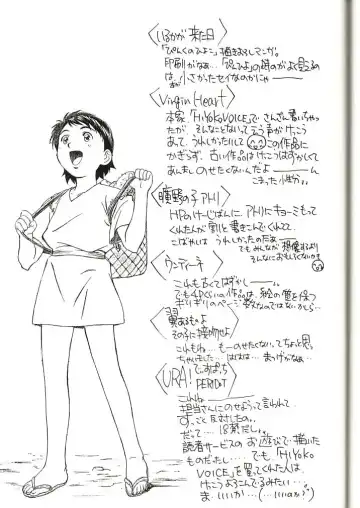 〈いるかが来た日〉
「ぴんくのひよこ」描きおろしマンガ。
印刷がなぁ…「ぴんひよ」の時のがよく見えるの
は、小さかったセイなのかにゃ―
〈Virgin Heart〉
本家「HiYoKoVOICE」でさんざん書いちゃっ
たが、そんなことないってえう声がけっこう
あって、うれしかったりして この作品に
かぎらず、古い作品はけっこうはずかしくて
あんましのせたくないんだよ―ん
こまった性分。
の子アトリ〉
HPのけいじばんに、アトリにキョーミもって
くれた人が割りと書きこんでくれてて、
こばやしは うれしかったのだぁ―
でもみんなが想像するより
そんなにおもしろくないかも
〈ウンディーネ〉
これも古くてはずかし―。
でも4Pぐらいの作品は、絵の質を保つ
ギリギリのページ数なのではないかしら…
〈翼あるもの
その子に接吻せよ〉
これもね…も―のせたくないってちょっと思っ
ちゃいました…ははは… まつげがなぁ…
〈URA! でぃすぱっち PERIDOT〉
これね―
担当さんにのせようって言われて
ず〜っごく反対したの。
だって…18禁だし。
読者サービスのお遊びで描いた
ものだったし… でも「HiYoKo
VOICE」を買ってくれた人は、
けっこうよろこんでるみたい…
ま、いいか…(…いいのか?)